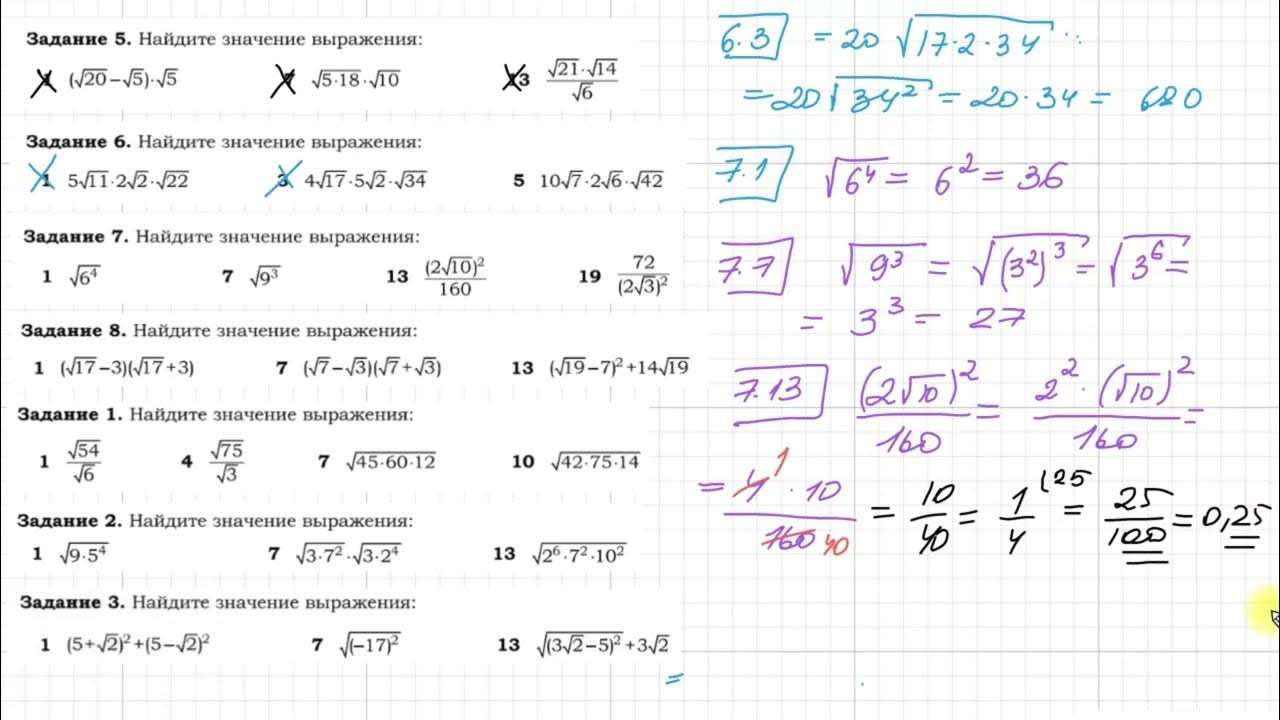 Задание 5. Найдите значение выражения:
(√20−√5)·√5 √5·18·√10 13 √21·√14/√6
Задание 6. Найдите значение выражения:
1 5√11·2√2·√22 3 4√17·5√2·√34 5 10√7·2√6·√42
Задание 7. Найдите значение выражения:
1 √6⁴ 7 √9³ 13 (2√10)²/160 19 72/(2√3)²
Задание 8. Найдите значение выражения:
1 (√17−3)(√17+3) 7 (√7−√3)(√7+√3) 13 (√19−7)²+14√19
Задание 1. Найдите значение выражения:
1 √54/√6 4 √75/√3 7 √45·60·12 10 √42·75·14
Задание 2. Найдите значение выражения:
1 √9·5⁴ 7 √3·7²·√3·2⁴ 13 √2⁶·7²·10²
Задание 3. Найдите значение выражения:
1 (5+√2)²+(5−√2)² 7 √(−17)² 13 √(3√2−5)²+3√2
=
6.3 = 20 √17·2·34
= 20√34² = 20·34 = 680
7.1 √6⁴ = 6² = 36
7.7 √9³ = √(3²)³ = √3⁶ =
= 3³ = 27
7.13 (2√10)²/160 = 2²·(√10)²/160 =
= 4·10/160 1 40 = 10/40 = 1/4 (25 = 25/100 = 0,25